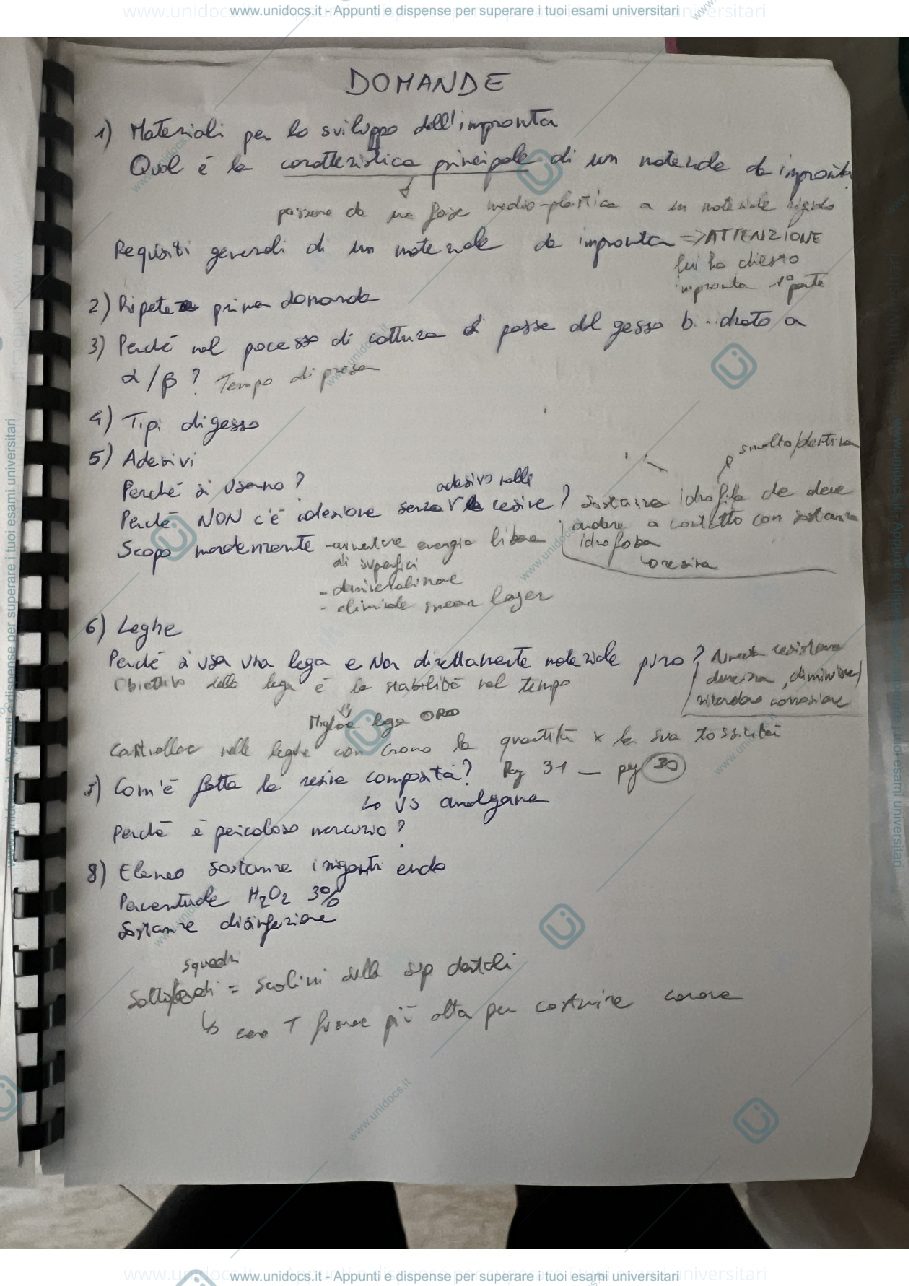 www.unidocs.it - Appunti e dispense per superare i tuoi esami universitari
DOMANDE
1) Materiali per lo sviluppo dell'impronta
Qual è la caratteristica principale di un materiale da impronta
passare da una fase medio-plastica a un materiale rigido
Requisiti generali di un materiale da impronta => ATTENZIONE
lui ha chiesto
impronta 1ª parte
2) Ripete prima domanda
3) Perché nel processo di cottura si passa dal gesso b...drato a
α/β ? Tempo di presa
4) Tipi di gesso
5) Adesivi
Perché si usano ?
Perché NON c'è adesione senza adesivo nelle resine ?
sostanza idrofila che deve
andare a contatto con sostanza
idrofoba
resina
smalto/dentina
Scopo mordenzante - aumentare energia libera
di superfici
- demineralizzare
- eliminare smear layer
6) Leghe
Perché si usa una lega e non direttamente materiale puro ?
Aumenta resistenza
durezza, diminuire/
ritardare corrosione
Obiettivo della lega è la stabilità nel tempo
Migliore lega ORO
Controllare nelle leghe con cromo la quantità x la sua tossicità
Com'è fatta la resina composita? Pag 31 - pag 30
Lo VS amalgama
Perché è pericoloso mercurio ?
8) Elenco sostanze irriganti endo
Percentuale H2O2 3%
Sostanze disinfezione
squadri
= scolini delle sup dentali
cera T fusione più alta per costruire corone
www.unidocs.it - Appunti e dispense per superare i tuoi esami universitari